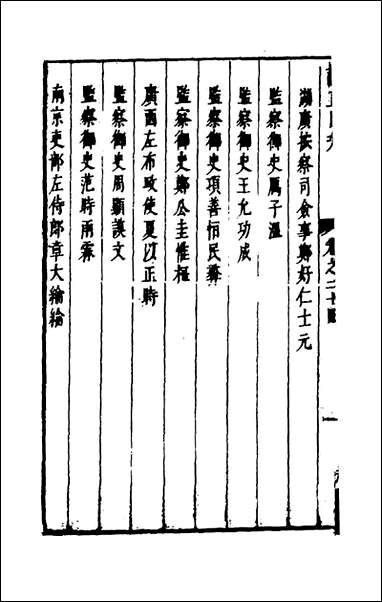 卷之二十四
湖廣按察司僉事鄭好仁士元
監察御史厲子溫
監察御史王允功成
監察御史項善怕民彝
監察御史鄭公圭惟桓
廣西左布政使夏以正時
監察御史周顯謨文
監察御史范時雨霖
南京吏部左侍郎章大綸綸